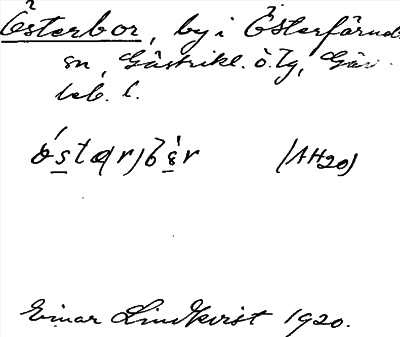 Österbor, by i Österfärneb.
sn, Gästrikl. ö. tg, Gäv.
leb. l.
ǿste(r)bèr (AH20)
Einar Lindkvist 1920.